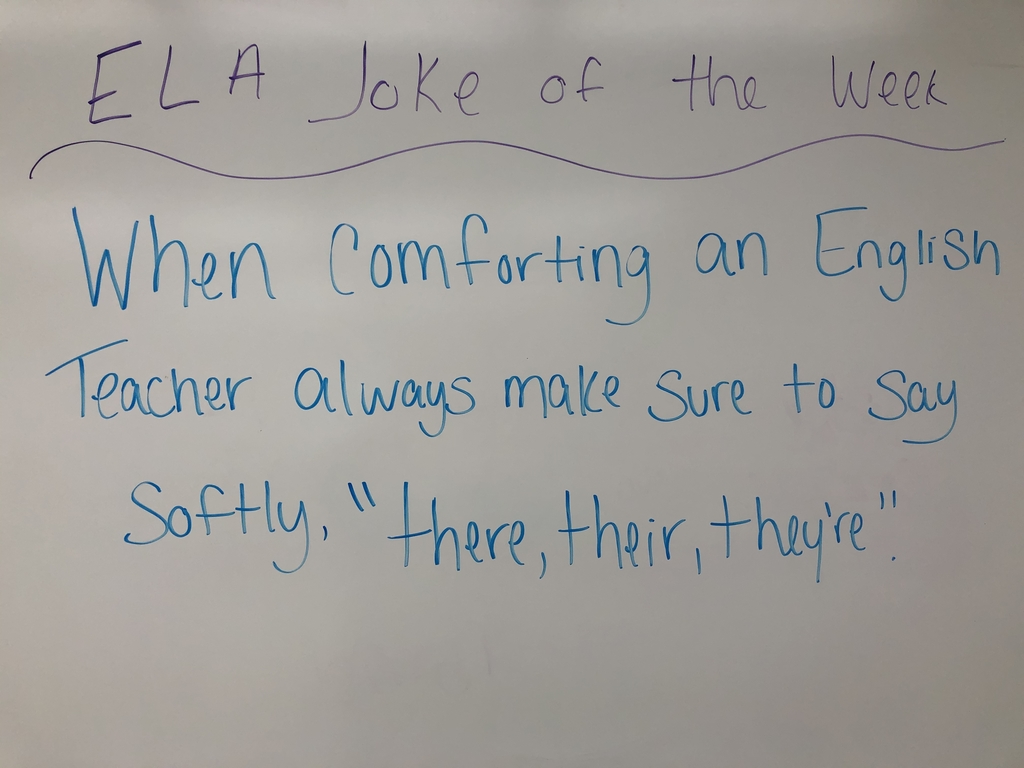 ELA Joke of the Week
When Comforting an English
Teacher always make sure to say
softly, "there, their, they're".